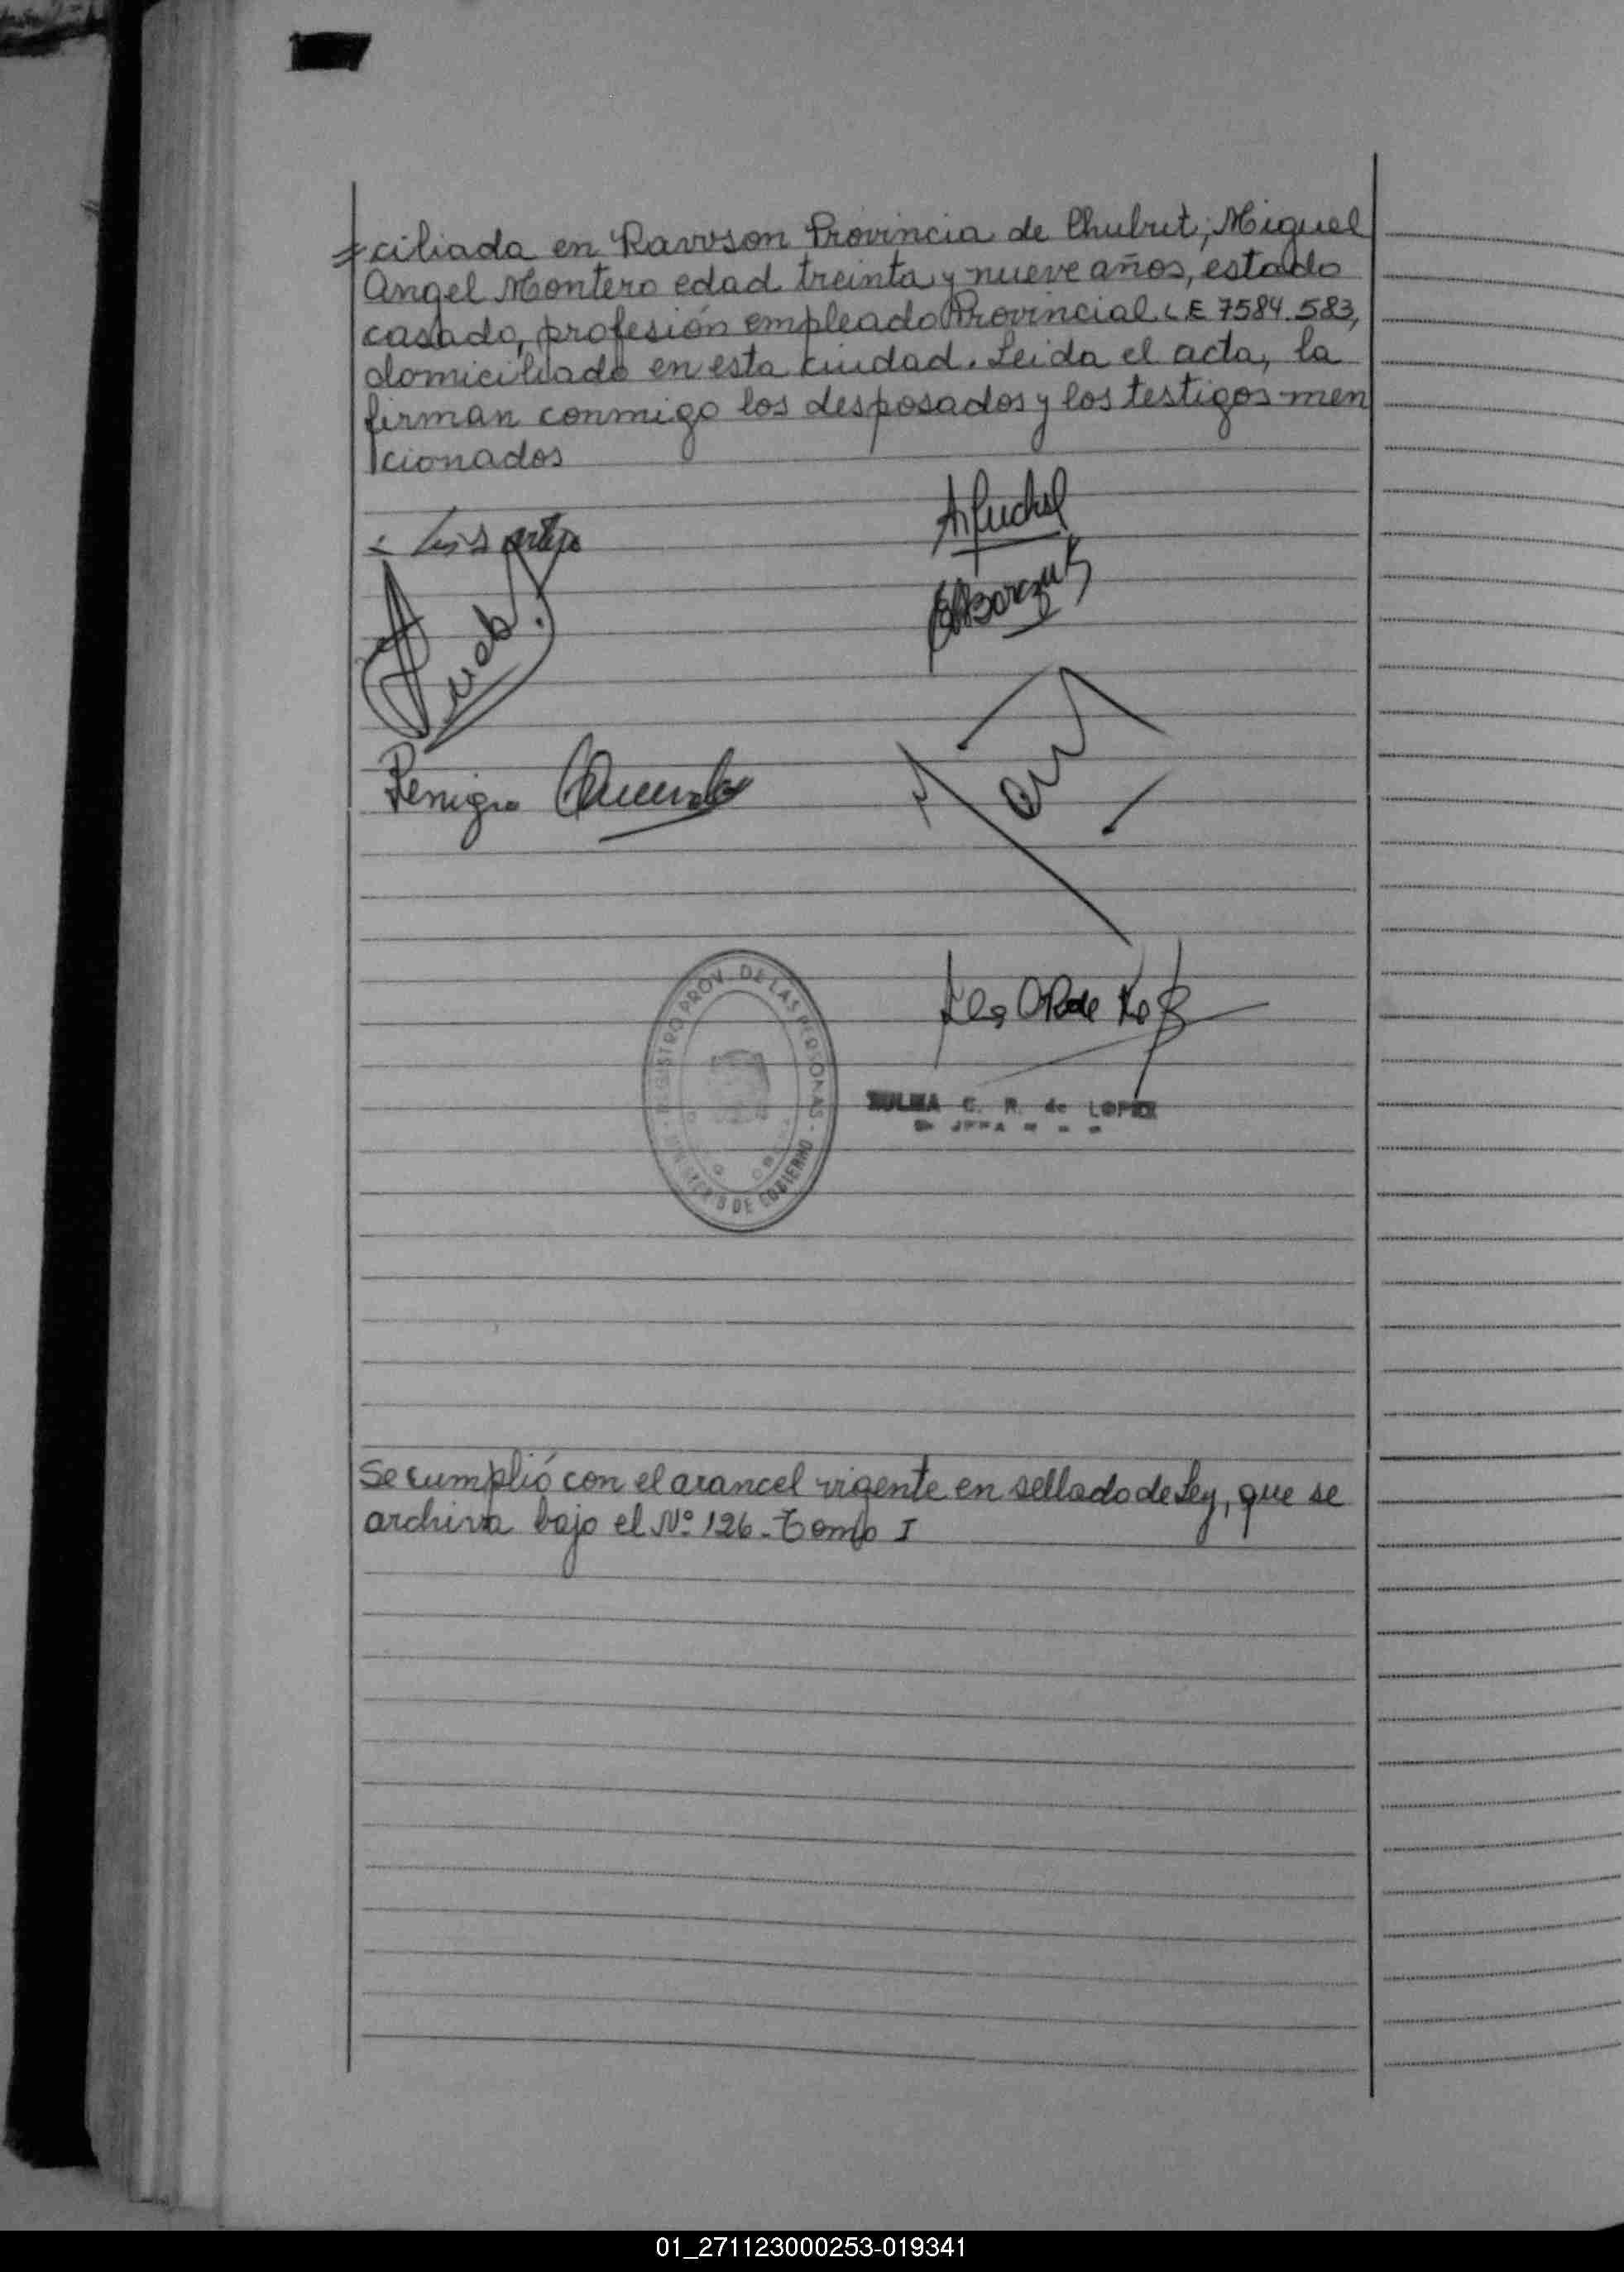 =ciliada en Rawson Provincia de Chubut; Miguel
Angel Montero edad treinta y nueve años, estado
casado, profesión empleado Provincial L.E 7584.583,
domiciliado en esta ciudad. Leida el acta, la
firman conmigo los desposados y los testigos men
cionados
Benigno
REGISTRO PROV. DE LAS PERSONAS - MINISTERIO DE GOBIERNO
ZULMA C. R. de LOPEZ
Se cumplió con el arancel vigente en sellado de Ley, que se
archiva bajo el Nº 126 - Tomo I
01_271123000253-019341